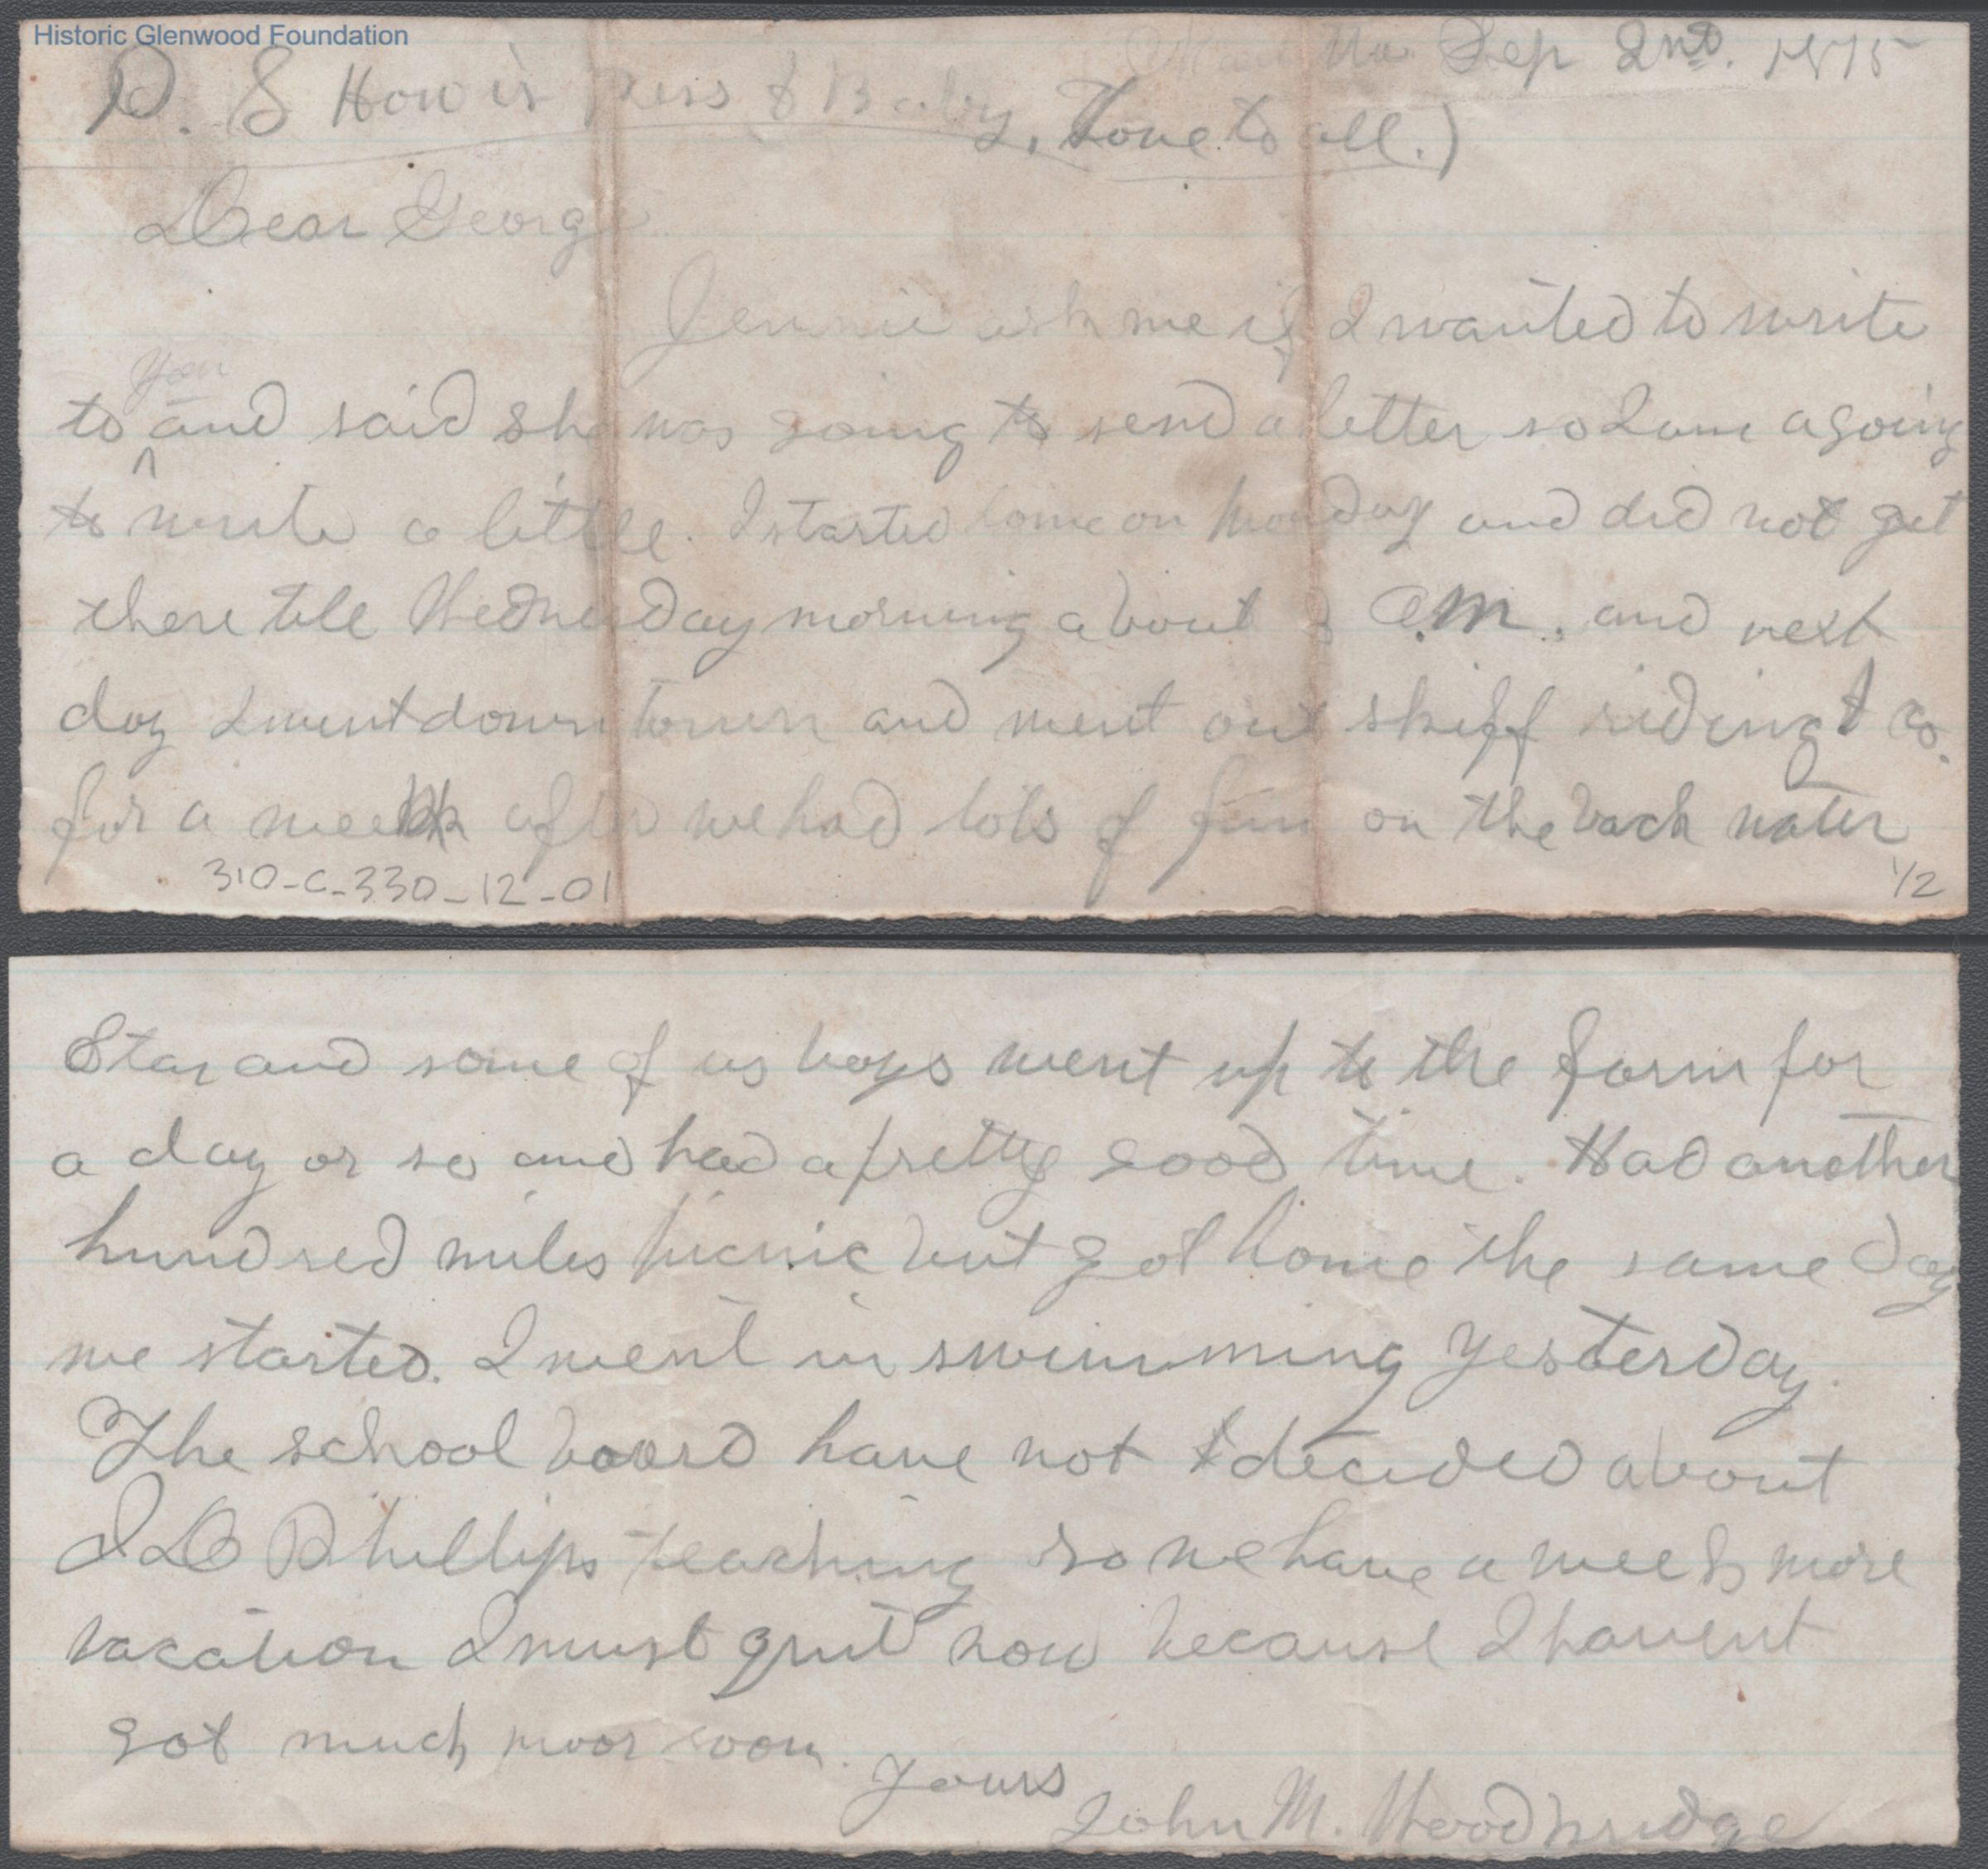 Historic Glenwood Foundation
Sep 2nd. 1875
P. S How is Puss & Baby, Love to all.)
Dear George
Jennie ask me if I wanted to write
you
to and said she was going to send a letter so I am agoing
to write a little. I started home on Monday and did not get
there till Wednesday morning about AM. and next
day I went down town and went out skiff riding & co.
for a week after we had lots of fun on the back water
310-C-330-12-01
1/2
Star and some of us boys went up to the farm for
a day or so and had a pretty good time. Had another
hundred miles picnic but got home the same day
we started. I went in swimming yesterday.
The school board have not decided about
I D Phillips teaching so we have a week more
vacation I must quit now because I havent
got much moor room.
Yours
John M. Woodbridge